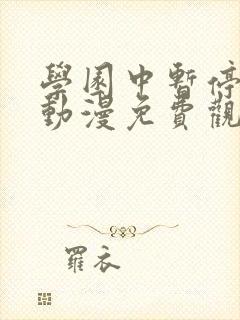 學園中暫停
動漫免費觀
羅衣